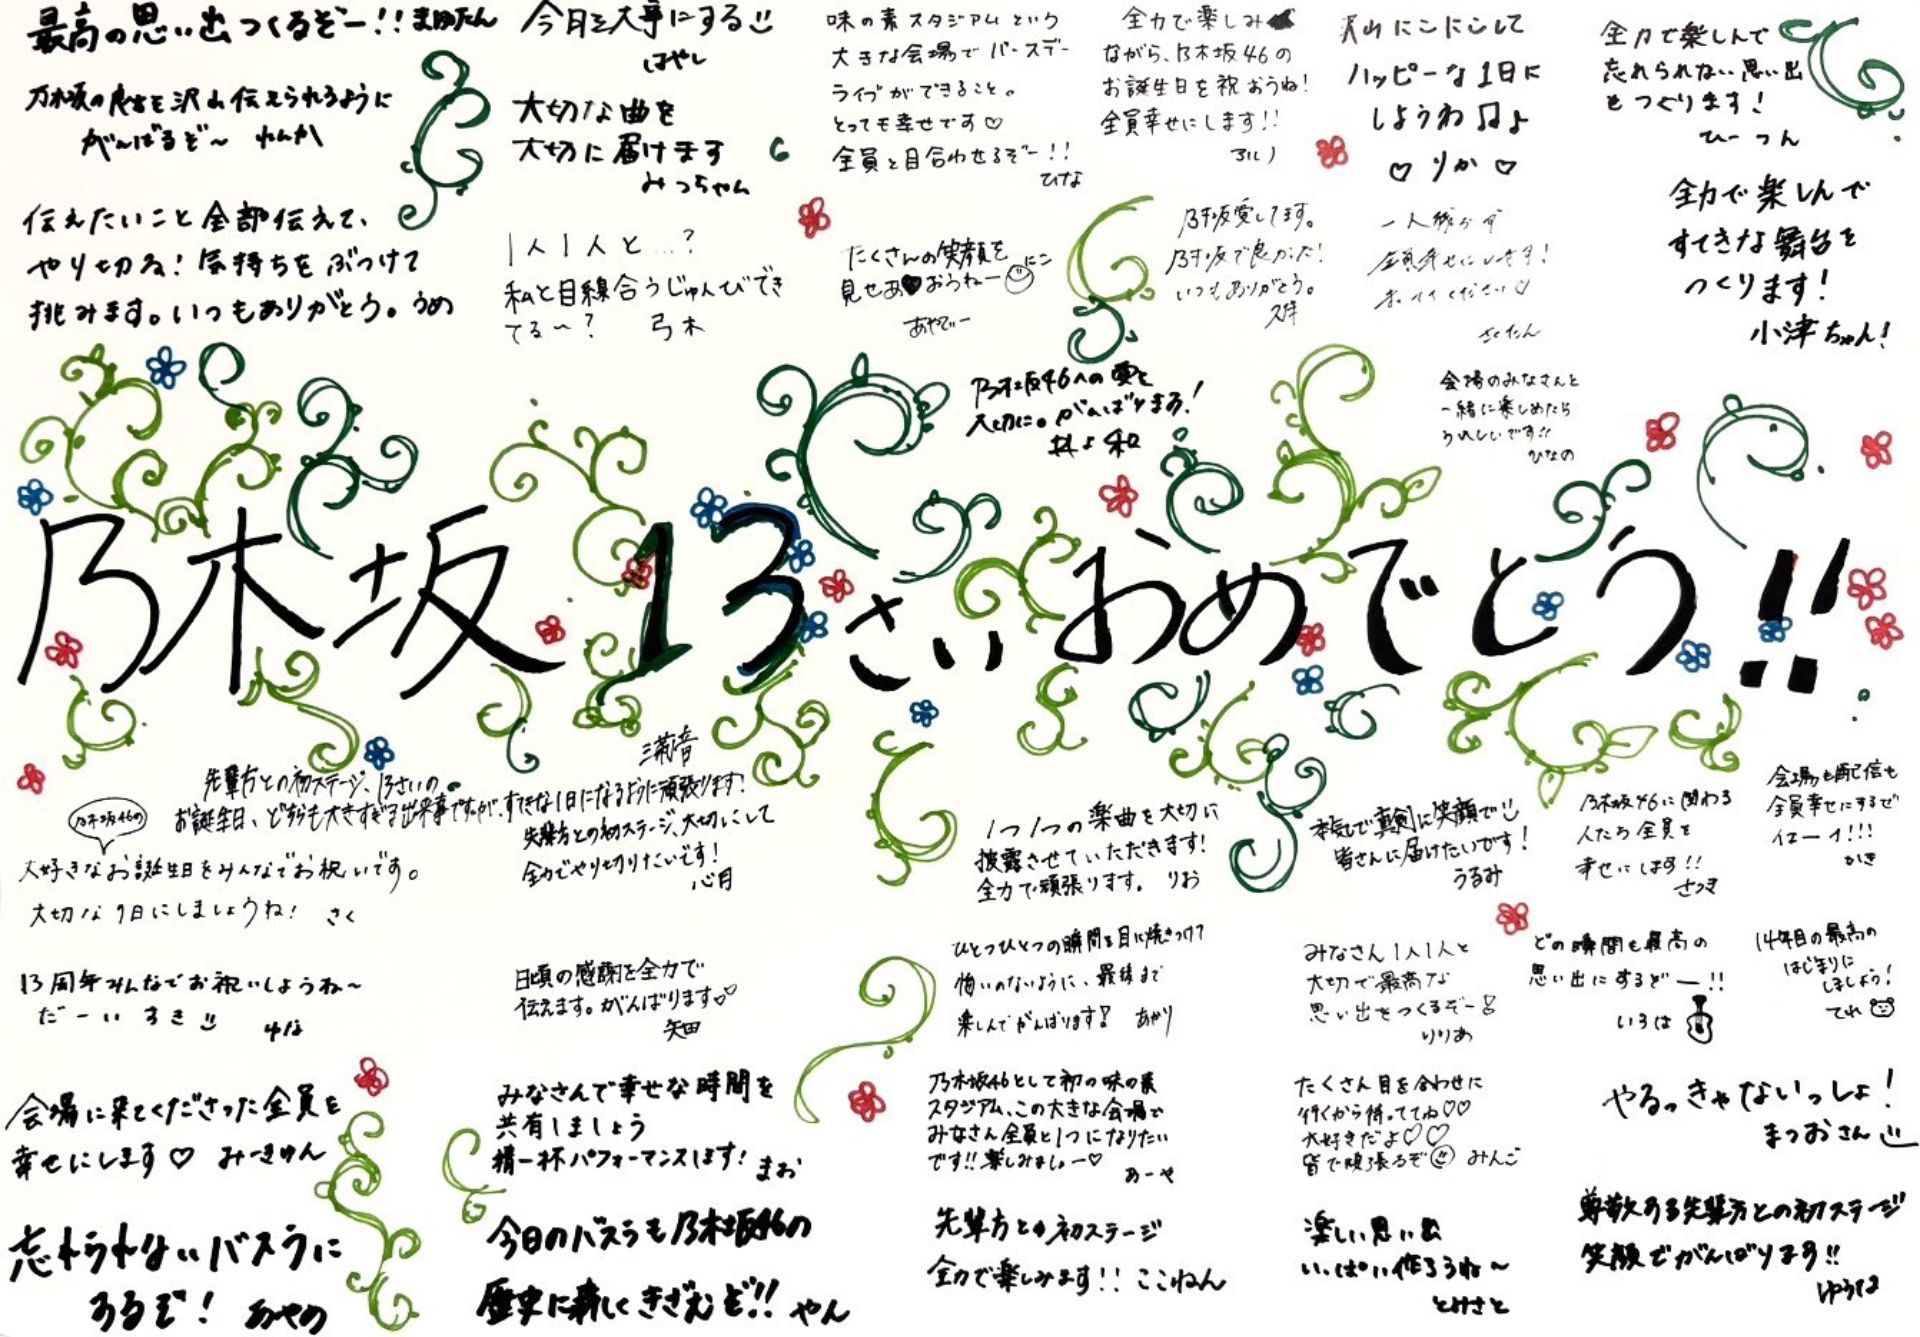 最高の思い出つくるぞー!! まゆたん
乃木坂の良さを沢山伝えられるように
がんばるぞ〜 れんか
伝えたいこと全部伝えて、
やり切る! 気持ちをぶつけて
挑みます。いつもありがとう。うめ
今日を大事にする
はやし
大切な曲を
大切に届けます
みっちゃん
1人1人と…?
私と目線合うじゅんびでき
てる〜? 弓木
味の素スタジアムという
大きな会場でバースデー
ライブができること。
とっても幸せです♡
全員と目合わせるぞー!!
ひな
たくさんの笑顔を
見せあ♥おうねー ニコ
あやてぃー
全力で楽しみ
ながら、乃木坂46の
お誕生日を祝おうね!
全員幸せにします!!
アルノ
乃木坂愛してます。
乃木坂で良かった!
いつもありがとう。
乃木坂46への愛を
大切に。がんばりまる!
井上和
沢山にこにこして
ハッピーな1日に
しようね♫
♡ りか ♡
一人残らず
全員幸せにします!
さくたん
会場のみなさんと
一緒に楽しめたら
うれしいです!!
ひなの
全力で楽しんで
忘れられない思い出
をつくります!
ひーつん
全力で楽しんで
すてきな舞台を
つくります!
小津ちゃん!
乃木坂13さいおめでとう!!
先輩方との初ステージ、13さいの
お誕生日、どちらも大きすぎる出来事ですが、すてきな1日になるように頑張ります!
乃木坂46の
大好きなお誕生日をみんなでお祝いです。
大切な1日にしましょうね! さく
先輩方との初ステージ、大切にして
全力でやり切りたいです!
心月
1つ1つの楽曲を大切に
披露させていただきます!
全力で頑張ります。 りお
本気で真剣に笑顔で
皆さんに届けたいです!
うるみ
乃木坂46に関わる
人たち全員を
幸せにします!!
さつき
会場も配信も
全員幸せにするぜ
イェーイ!!!
かき
13周年みんなでお祝いしようね〜
だーいすき
ゆな
日頃の感謝を全力で
伝えます。がんばります♡
矢田
ひとつひとつの瞬間を目に焼きつけて
悔いのないように、最後まで
楽しんでがんばります! あかり
みなさん1人1人と
大切で最高な
思い出をつくるぞー!
りりあ
どの瞬間も最高の
思い出にするぞー!!
いろは
14年目の最高の
はじまりに
しましょう!
てれ
会場に来てくださった全員を
幸せにします♡ みーきゅん
みなさんで幸せな時間を
共有しましょう
精一杯パフォーマンスします! まお
乃木坂46として初の味の素
スタジアム、この大きな会場で
みなさん全員と1つになりたい
です!! 楽しみましょー♡
あーや
たくさん目を合わせに
行くから待っててね♡♡
大好きだよ♡♡
皆で頑張るぞ みんご
やるっきゃないっしょ!
まつおさん
忘れられないバスラに
するぞ! あやの
今日のバスラも乃木坂46の
歴史に新しくきざむぞ!! やん
先輩方との初ステージ
全力で楽しみます!! ここねん
楽しい思い出
いっぱい作ろうね〜
とみさと
尊敬する先輩方との初ステージ
笑顔でがんばります!!
ゆうは